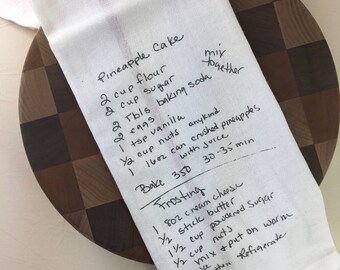 Pineapple Cake
2 cup flour
2 cup sugar
mix together
2 Tbls baking soda
2 eggs
1 top vanilla
1/2 cup nuts anykind
1 16oz can crushed pineapples
with juice
Bake 350 30-35 min
Frosting
1 8oz cream cheese
stick butter
1 1/2 cup powdered sugar
1/2 cup nuts
mix & put on warm
Refrigerate